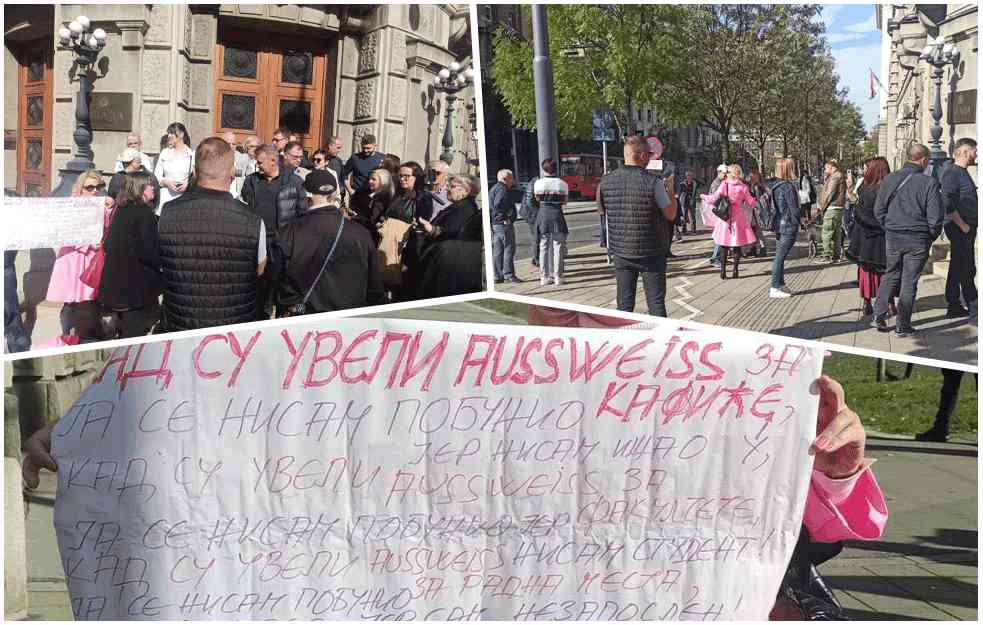 КАД СУ УВЕЛИ AUSSWEISS ЗА
КАФИЋЕ,
ЈА СЕ НИСАМ ПОБУНИО
ЈЕР НИСАМ ИШАО У,
КАД СУ УВЕЛИ AUSSWEISS ЗА
ФАКУЛТЕТЕ,
ЈА СЕ НИСАМ ПОБУНИО ЈЕР
НИСАМ СТУДЕНТ!
КАД СУ УВЕЛИ AUSSWEISS
ЗА РАДНА МЕСТА
ЈА СЕ НИСАМ ПОБУНИО
САМ НЕЗАПОСЛЕН!